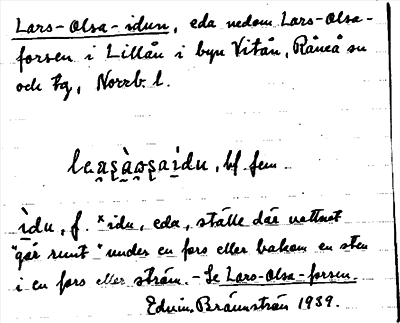 Lars-Olsa-idun, eda nedom Lars-Olsa-
forsen i Lillån i byn Vitån, Råneå sn
och tg, Norrb. l.
bf fem
ìdu, f. *idu, eda, ställe där vattnet
"går runt" under en fors eller bakom en sten
i en fors eller ström. - Se Lars-Olsa-forsen.
Edvin Brännström 1939.